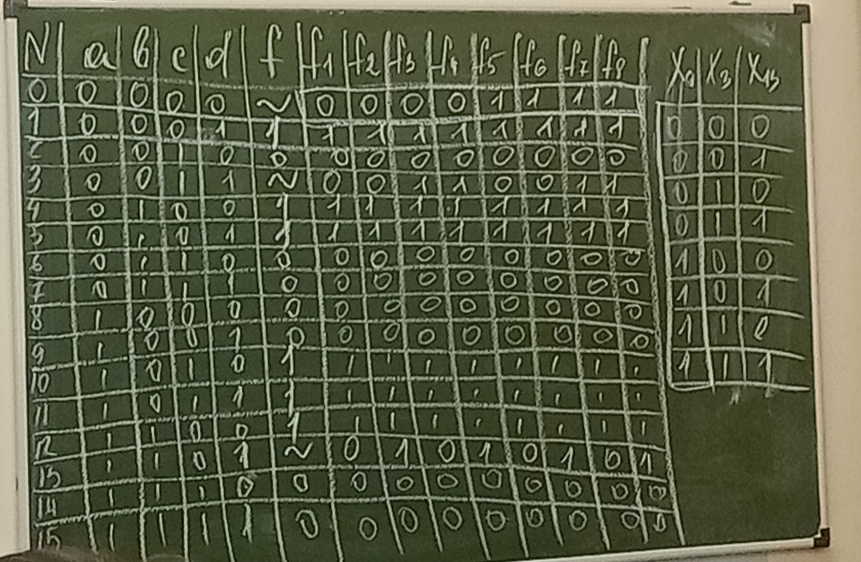 N a b c d f f1 f2 f3 f4 f5 f6 f7 f8
0 0 0 0 0 ~ 0 0 0 0 1 1 1 1
1 0 0 0 1 1 1 1 1 1 1 1 1 1
2 0 0 1 0 0 0 0 0 0 0 0 0 0
3 0 0 1 1 ~ 0 0 1 1 0 0 1 1
4 0 1 0 0 1 1 1 1 1 1 1 1 1
5 0 1 0 1 1 1 1 1 1 1 1 1 1
6 0 1 1 0 0 0 0 0 0 0 0 0 0
7 0 1 1 1 0 0 0 0 0 0 0 0 0
8 1 0 0 0 0 0 0 0 0 0 0 0 0
9 1 0 0 1 0 0 0 0 0 0 0 0 0
10 1 0 1 0 1 1 1 1 1 1 1 1 1
11 1 0 1 1 1 1 1 1 1 1 1 1 1
12 1 1 0 0 1 1 1 1 1 1 1 1 1
13 1 1 0 1 ~ 0 1 0 1 0 1 0 1
14 1 1 1 0 0 0 0 0 0 0 0 0 0
15 1 1 1 1 0 0 0 0 0 0 0 0 0
X0 X3 X13
0 0 0
0 0 1
0 1 0
0 1 1
1 0 0
1 0 1
1 1 0
1 1 1